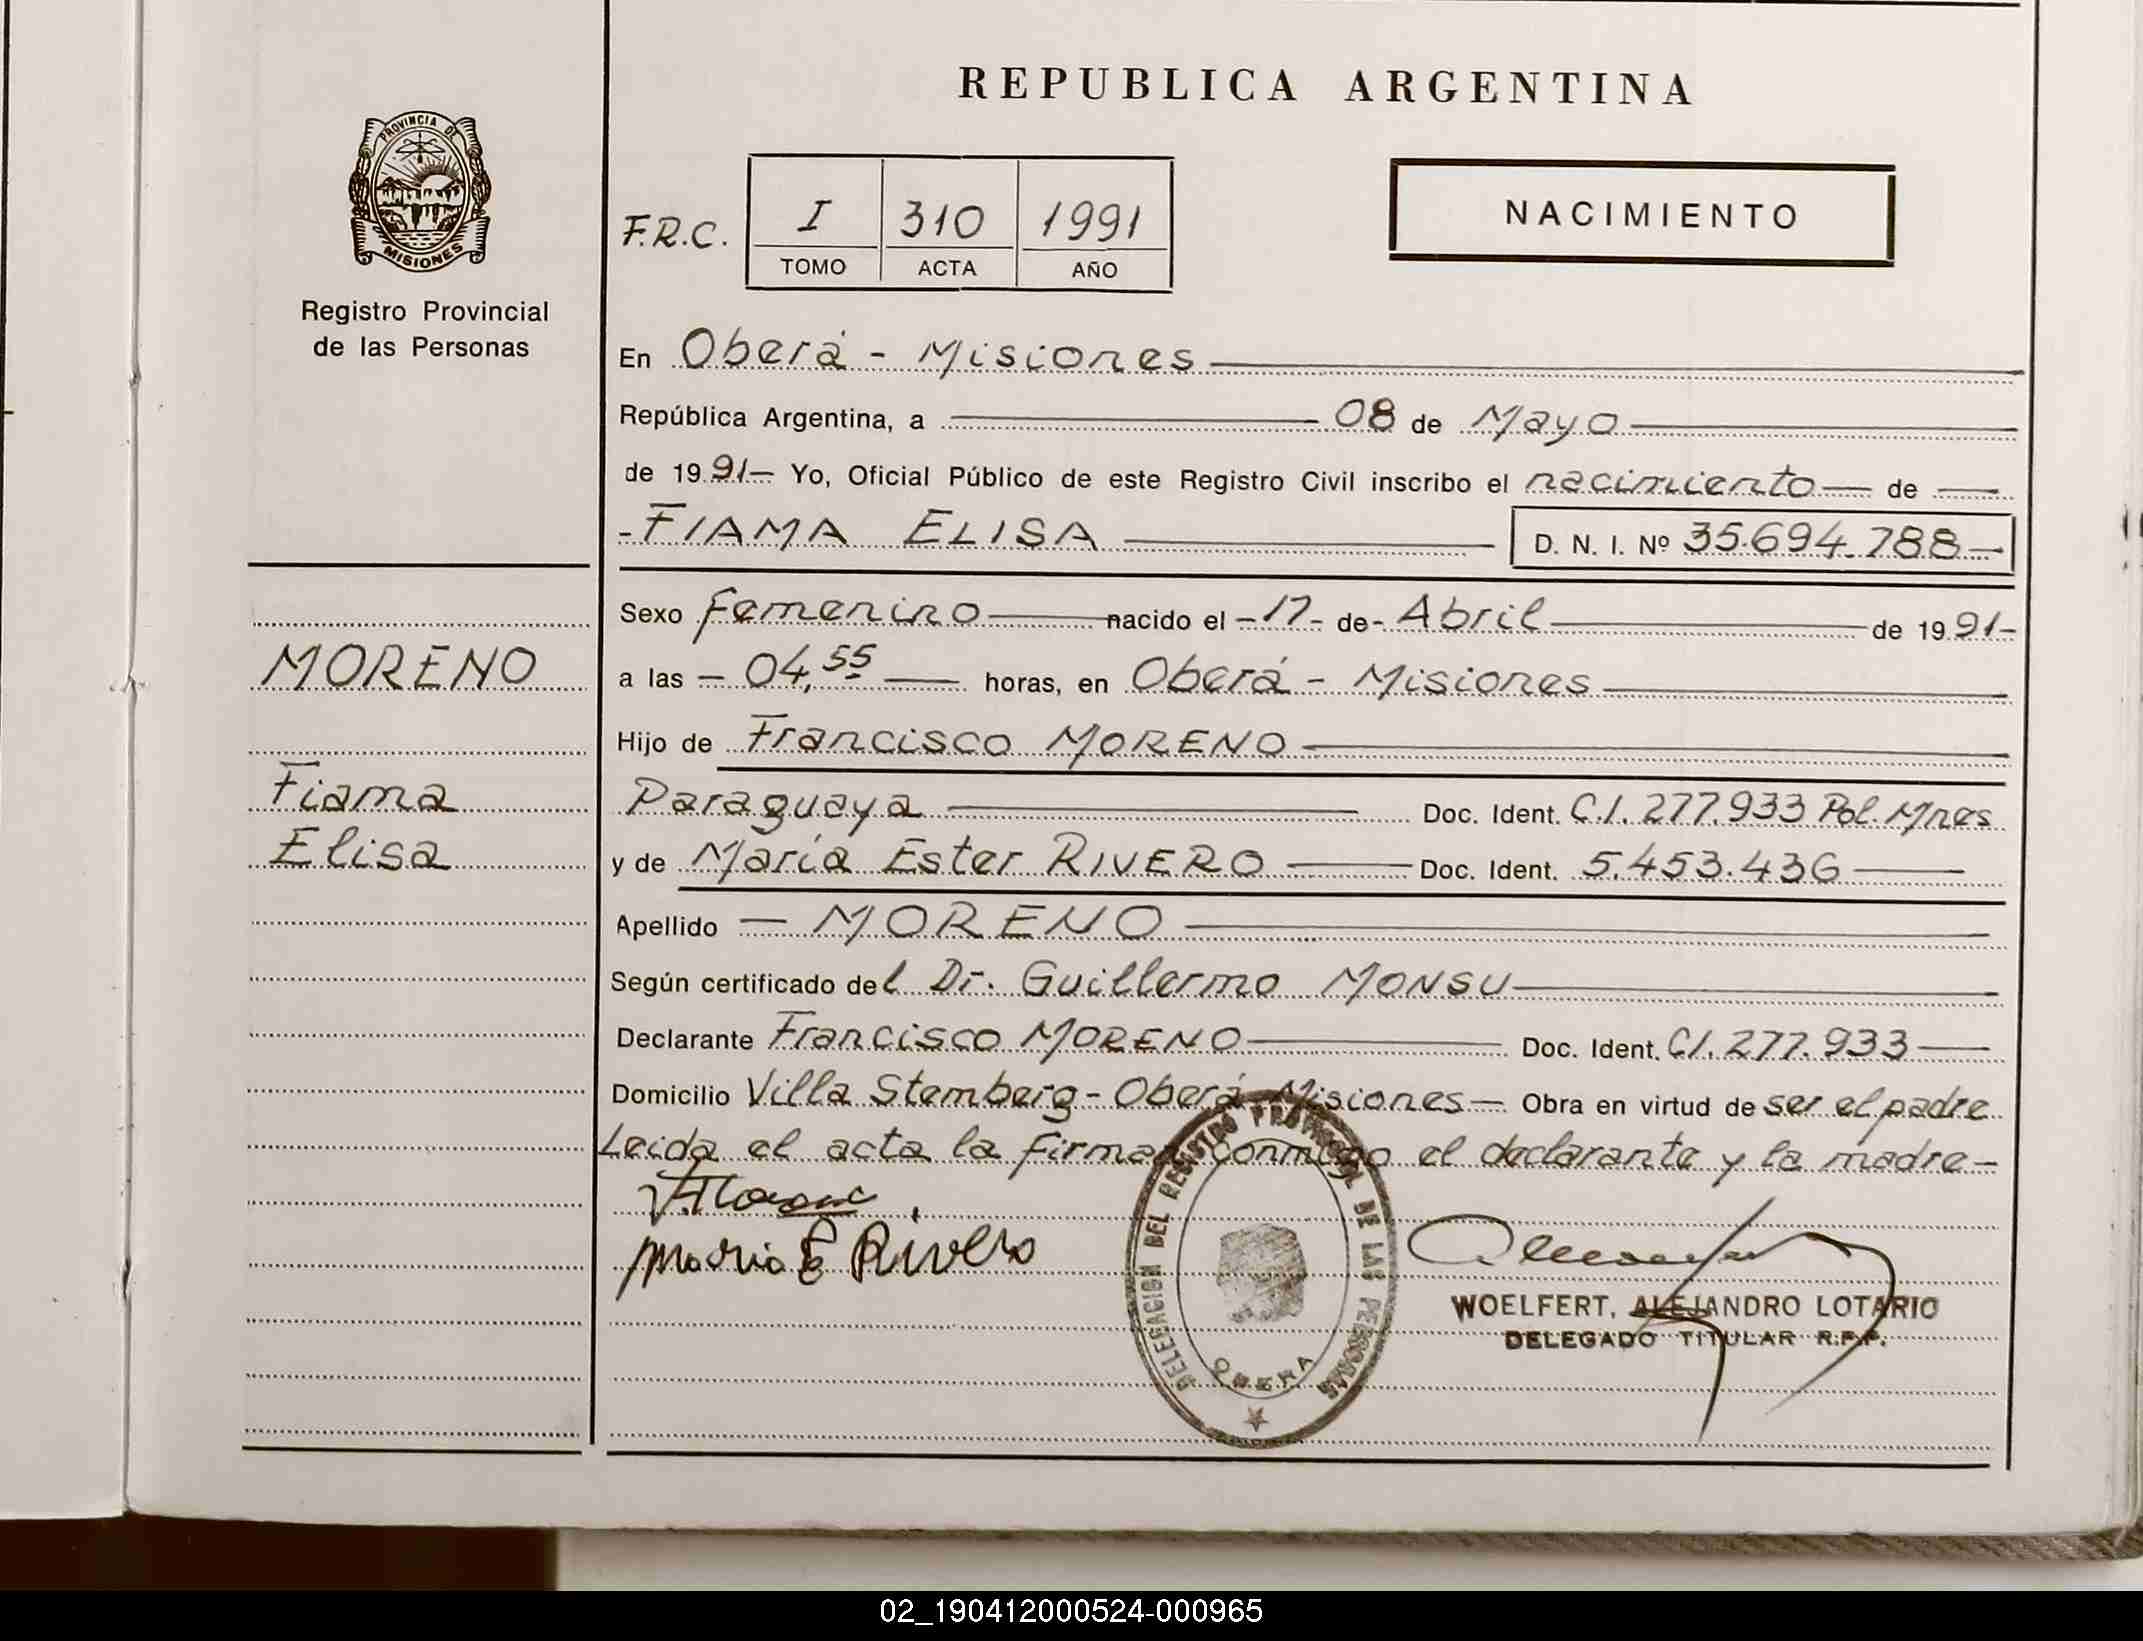 REPUBLICA ARGENTINA
PROVINCIA DE
MISIONES
Registro Provincial
de las Personas
F.R.C.
I 310 1991
TOMO ACTA AÑO
NACIMIENTO
En Oberá - Misiones
República Argentina, a 08 de Mayo
de 1991- Yo, Oficial Público de este Registro Civil inscribo el nacimiento de
- FIAMA ELISA D. N. I. Nº 35.694.788-
MORENO
Fiama
Elisa
Sexo femenino nacido el -17- de- Abril de 1991-
a las - 04,55 horas, en Oberá - Misiones
Hijo de Francisco MORENO
Paraguaya Doc. Ident. C.I. 277.933 Pol. Mnes
y de María Ester RIVERO Doc. Ident. 5.453.436
Apellido - MORENO
Según certificado del Dr. Guillermo MONSU
Declarante Francisco MORENO Doc. Ident. CI. 277.933
Domicilio Villa Stemberg - Oberá Misiones - Obra en virtud de ser el padre
Leida el acta la firman conmigo el declarante y la madre-
Maria E Rivero
DELEGACION DEL REGISTRO PROVINCIAL DE LAS PERSONAS
OBERA
WOELFERT, ALEJANDRO LOTARIO
DELEGADO TITULAR R.P.P.
02_190412000524-000965